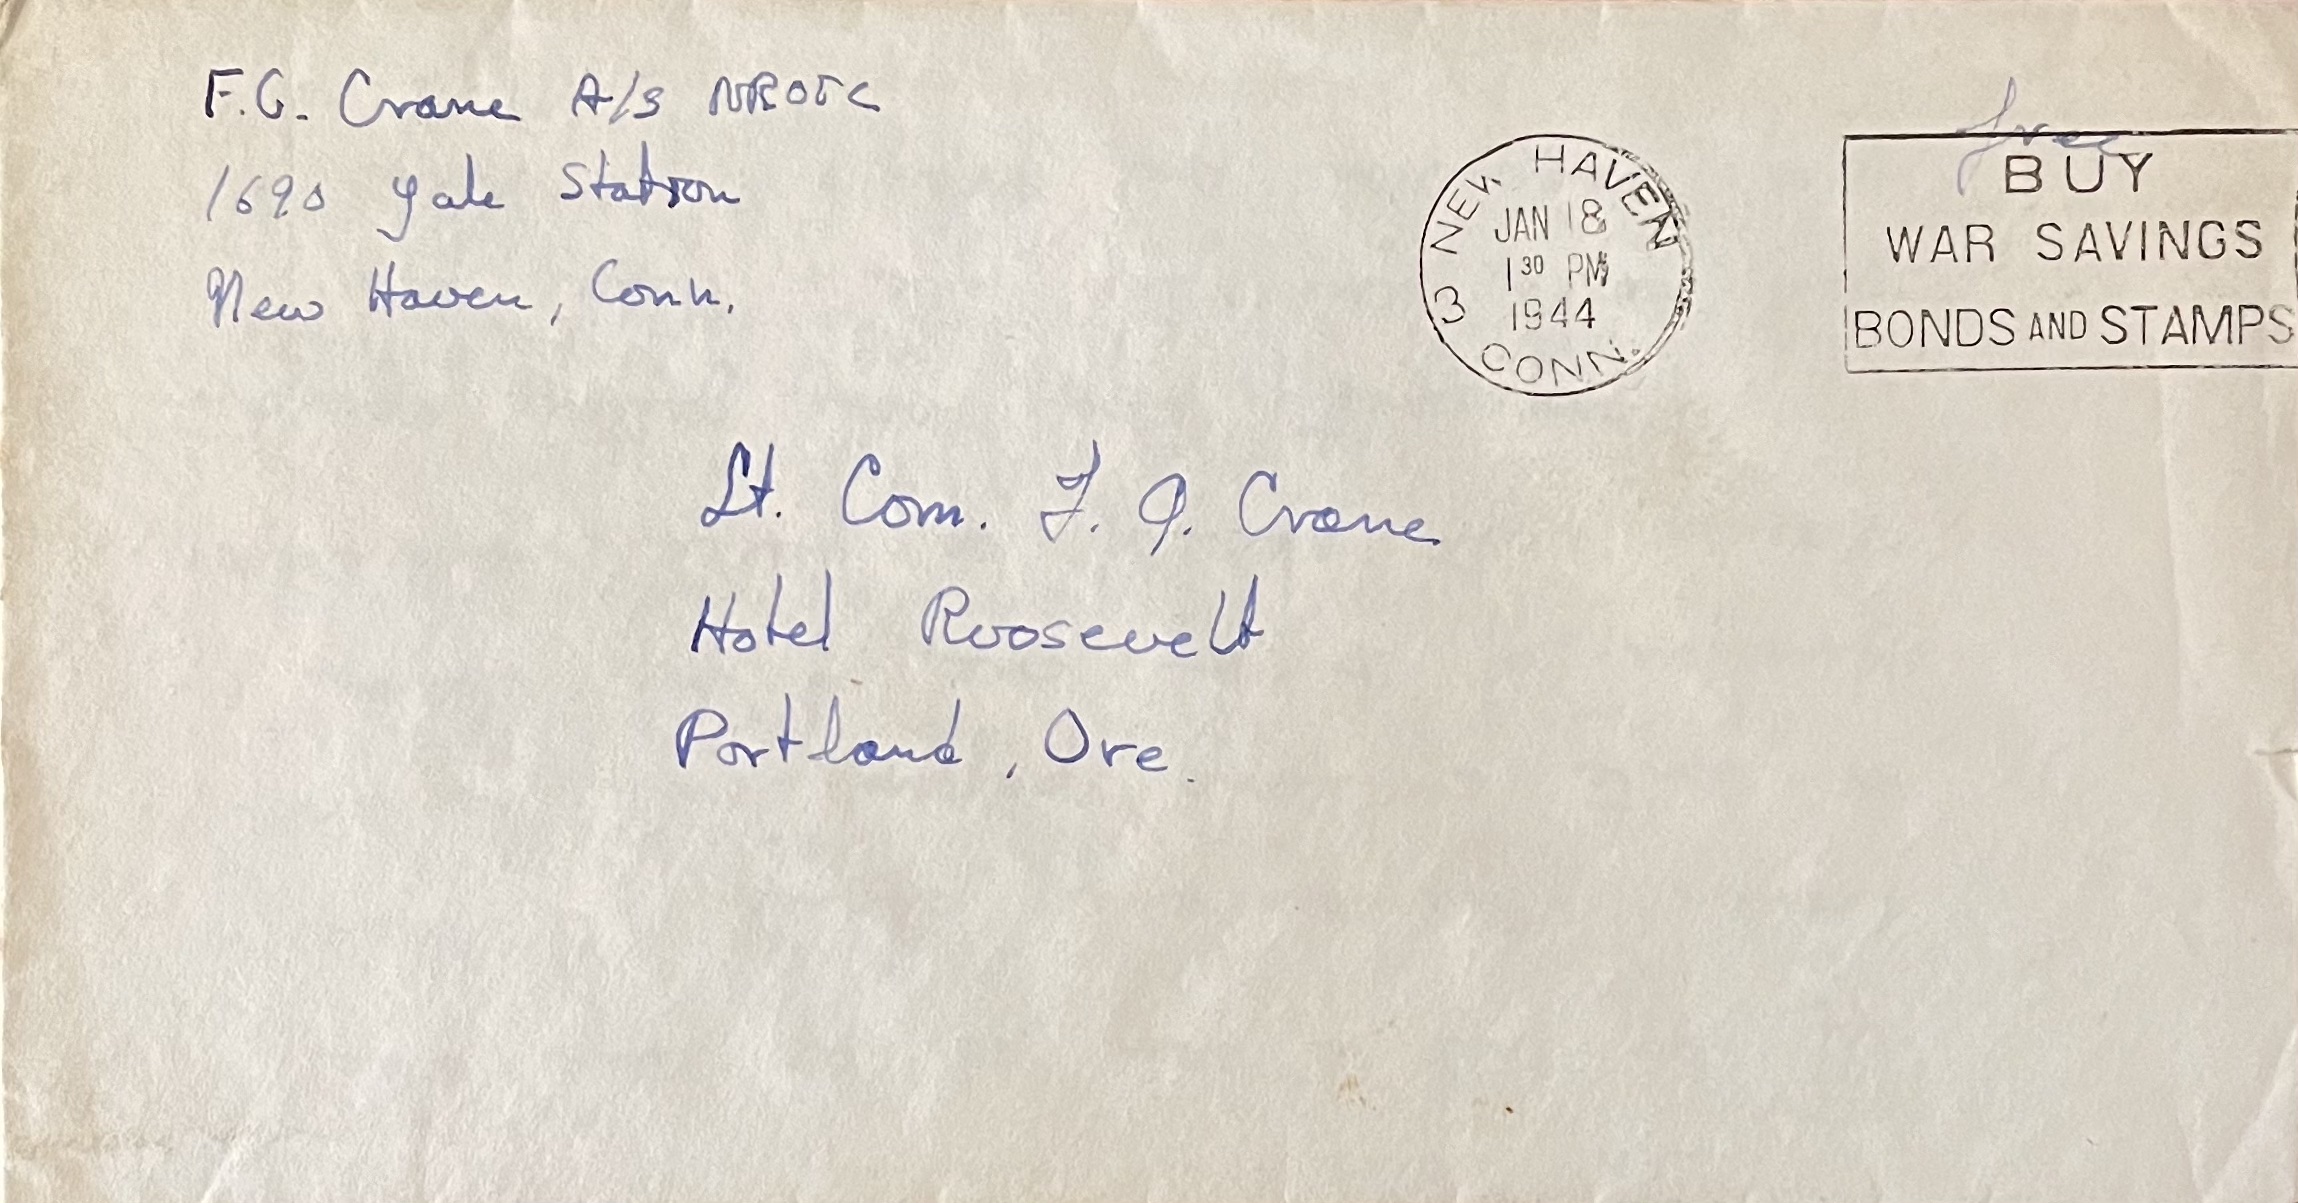 F.G. Crane A/S NROTC
1690 Yale Station
New Haven, Conn.
free
3 NEW HAVEN CONN.
JAN 18
1 30 PM
1944
BUY
WAR SAVINGS
BONDS AND STAMPS
Lt. Com. F. J. Crane
Hotel Roosevelt
Portland, Ore.